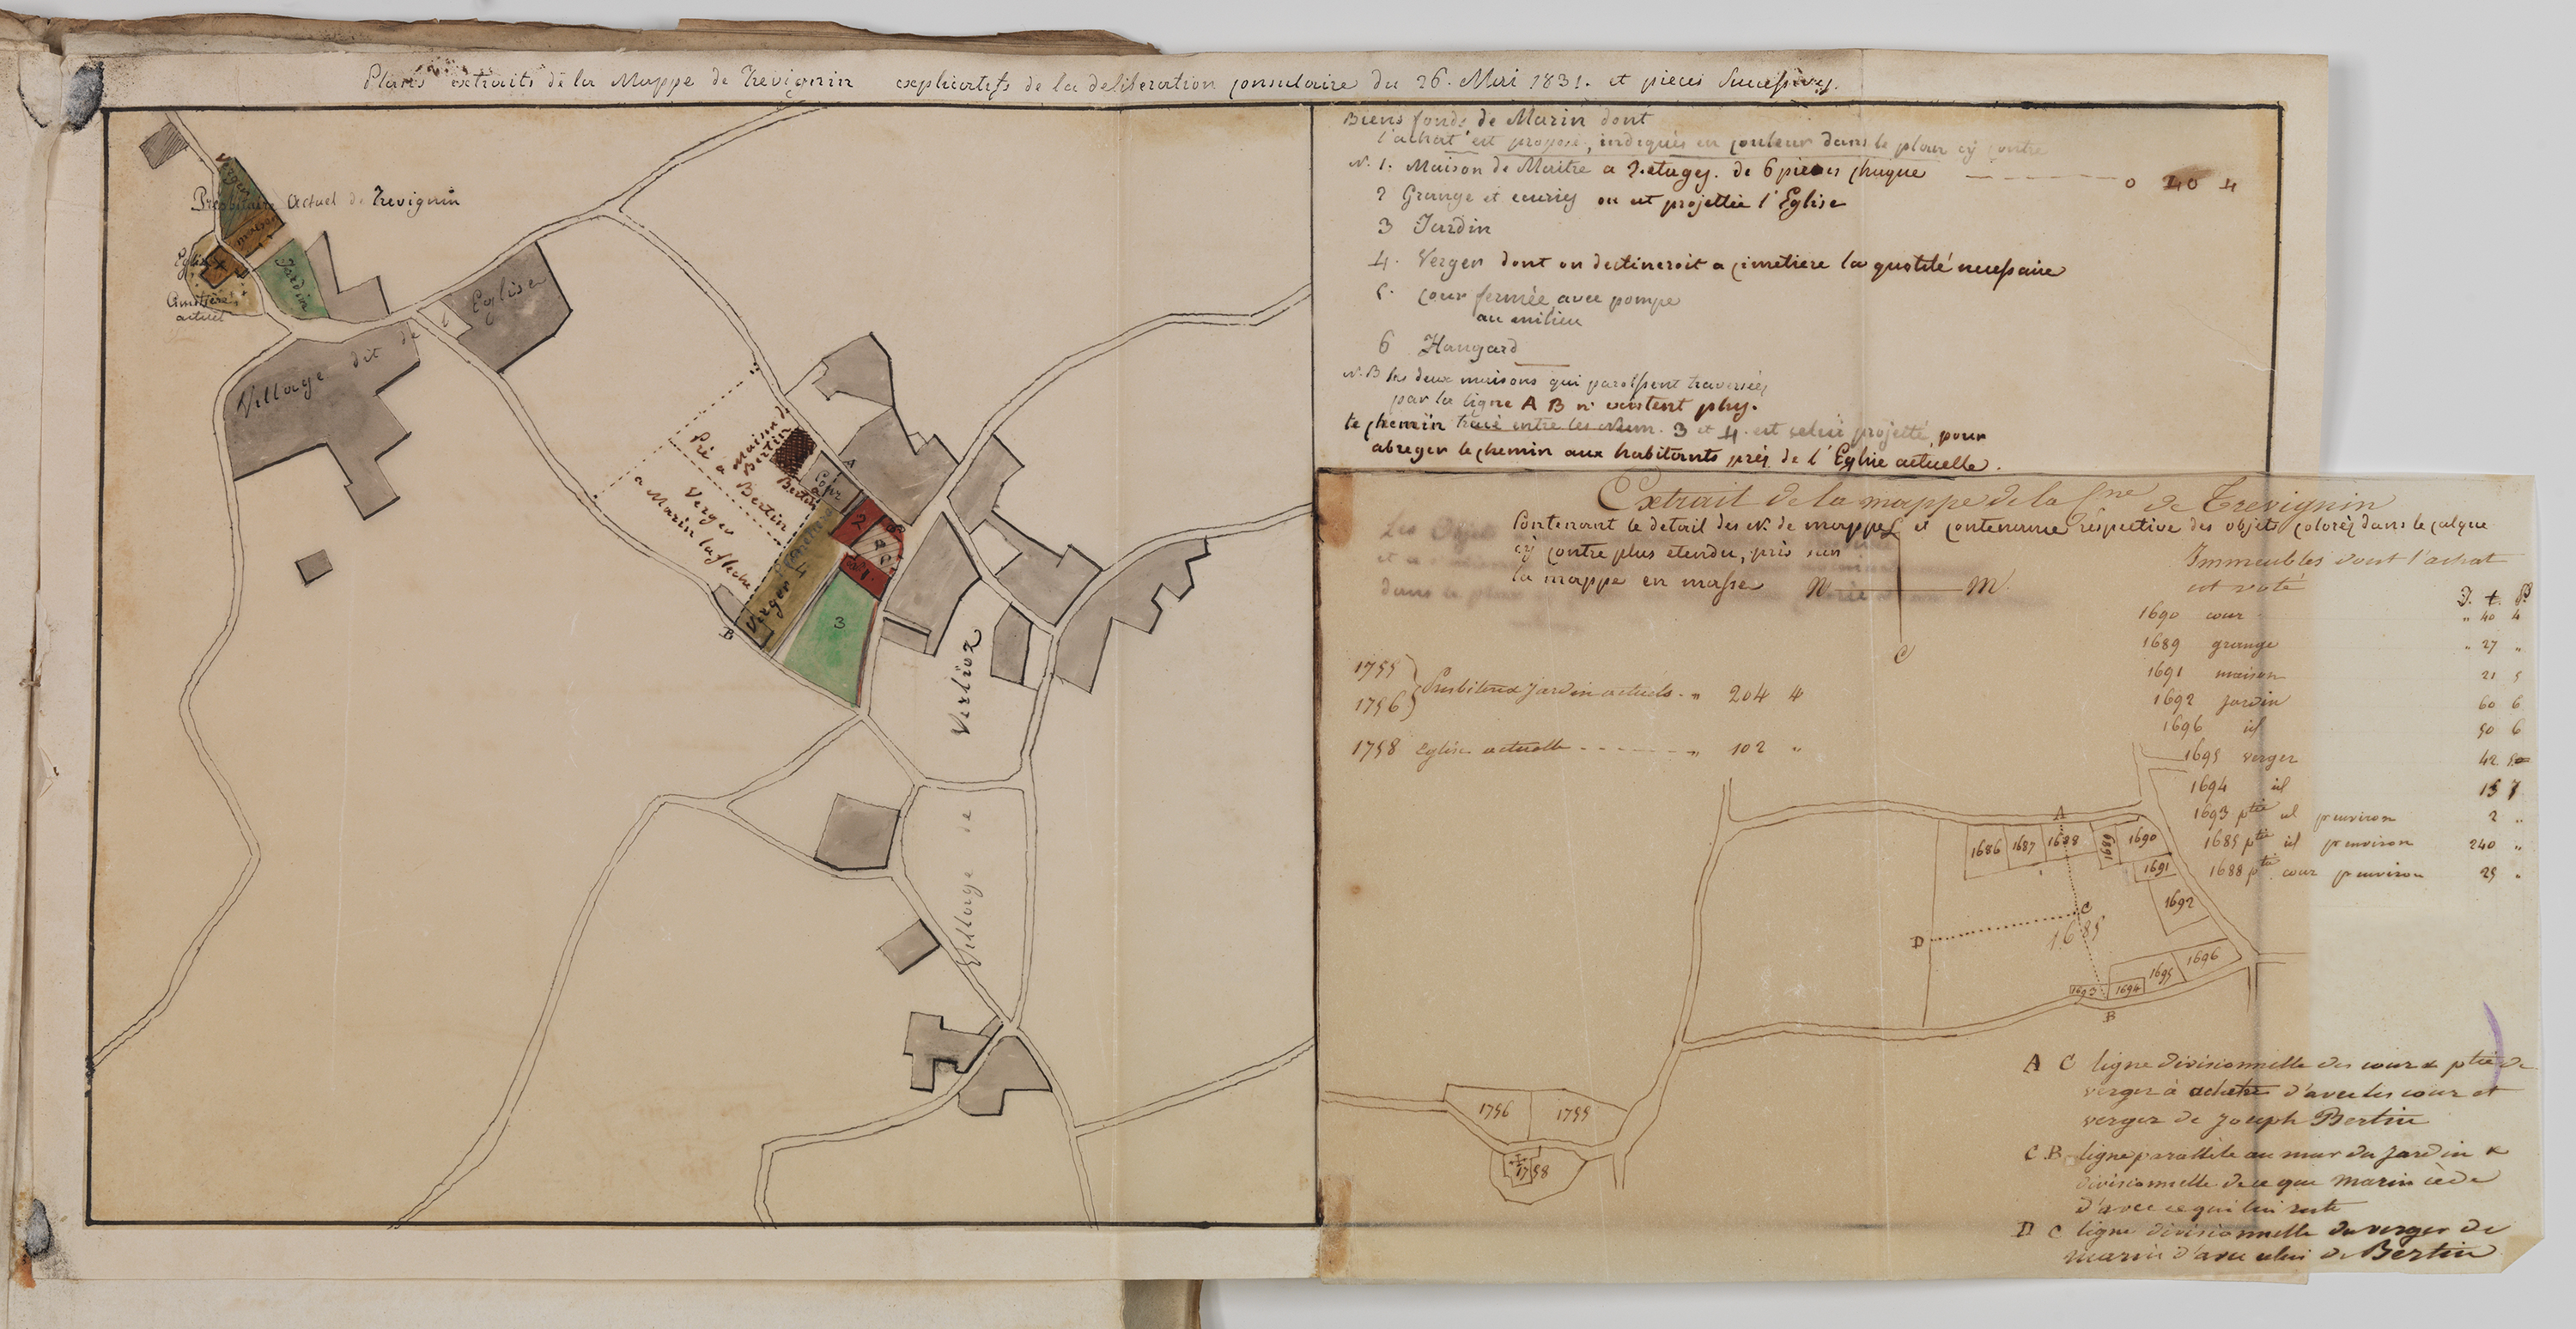 Plans extraits de la Mappe de Trevignin explicatifs de la deliberation consulaire du 26. Mai 1831. et pieces Successives.
Verger
Presbitaire Actuel de Trevignin
maison
Eglise
Jardin
Cimitiere
actuel
Village dit de
l'Eglise
Pré a
Bertin
maison
Bertin
A
Cour
a
Bertin
Verger
a Marin lafleche
2
5
6
N 1.
Verger 4
3
B
Verlioz
Village de
Biens fonds de Marin dont
l'achat est proposé, indiqués en couleur dans le plan cy contre
N. 1. Maison de Maitre a 2. etages. de 6 pieces chaque 0 40 4
2 Grange et ecuries ou est projettée l'Eglise
3 Jardin
4. Verger dont on destineroit a cimetiere la quotité necessaire
5. Cour fermée avec pompe
au milieu
6 Hangard
N.B les deux maisons qui paroissent traversées
par la ligne A B n'existent plus.
le chemin tracé entre les Num. 3 et 4. est celui projetté, pour
abreger le chemin aux habitants près de l'Eglise actuelle.
Extrait de la mappe de la Cne de Trevignin
Contenant le detail des N. de mappes et contenance respective des objets colorés dans le calque
cy contre plus etendu, pris sur
la mappe en masse
N M.
C
Immeubles dont l'achat
est voté
J. t. P
1690 cour „ 40 4
1689 grange „ 27 „
1691 maison 21 5
1692 Jardin 60 6
1696 id 50 6
1695 verger 42
1694 id 15 7
1693 ptie id pr environ 2 „
1685 ptie id pr environ 240 „
1688 ptie cour pr environ 25 „
1755
1756 Presbitere & Jardin actuels. „ 204 4
1758 Eglise actuelle „ 102 „
A
1686 1687 1688 1689 1690
1691
1692
C
D
1685
1696
1695
1693 1694
B
1756 1755
1758
A C ligne divisionnelle des cour & ptie de
verger à acheter d'avec les cour et
verger de Joseph Bertin
C B ligne parallèle au mur du Jardin &
divisionnelle de ce que Marin cède
d'avec ce qui lui reste
D C ligne divisionnelle du verger de
Marin d'avec celui de Bertin